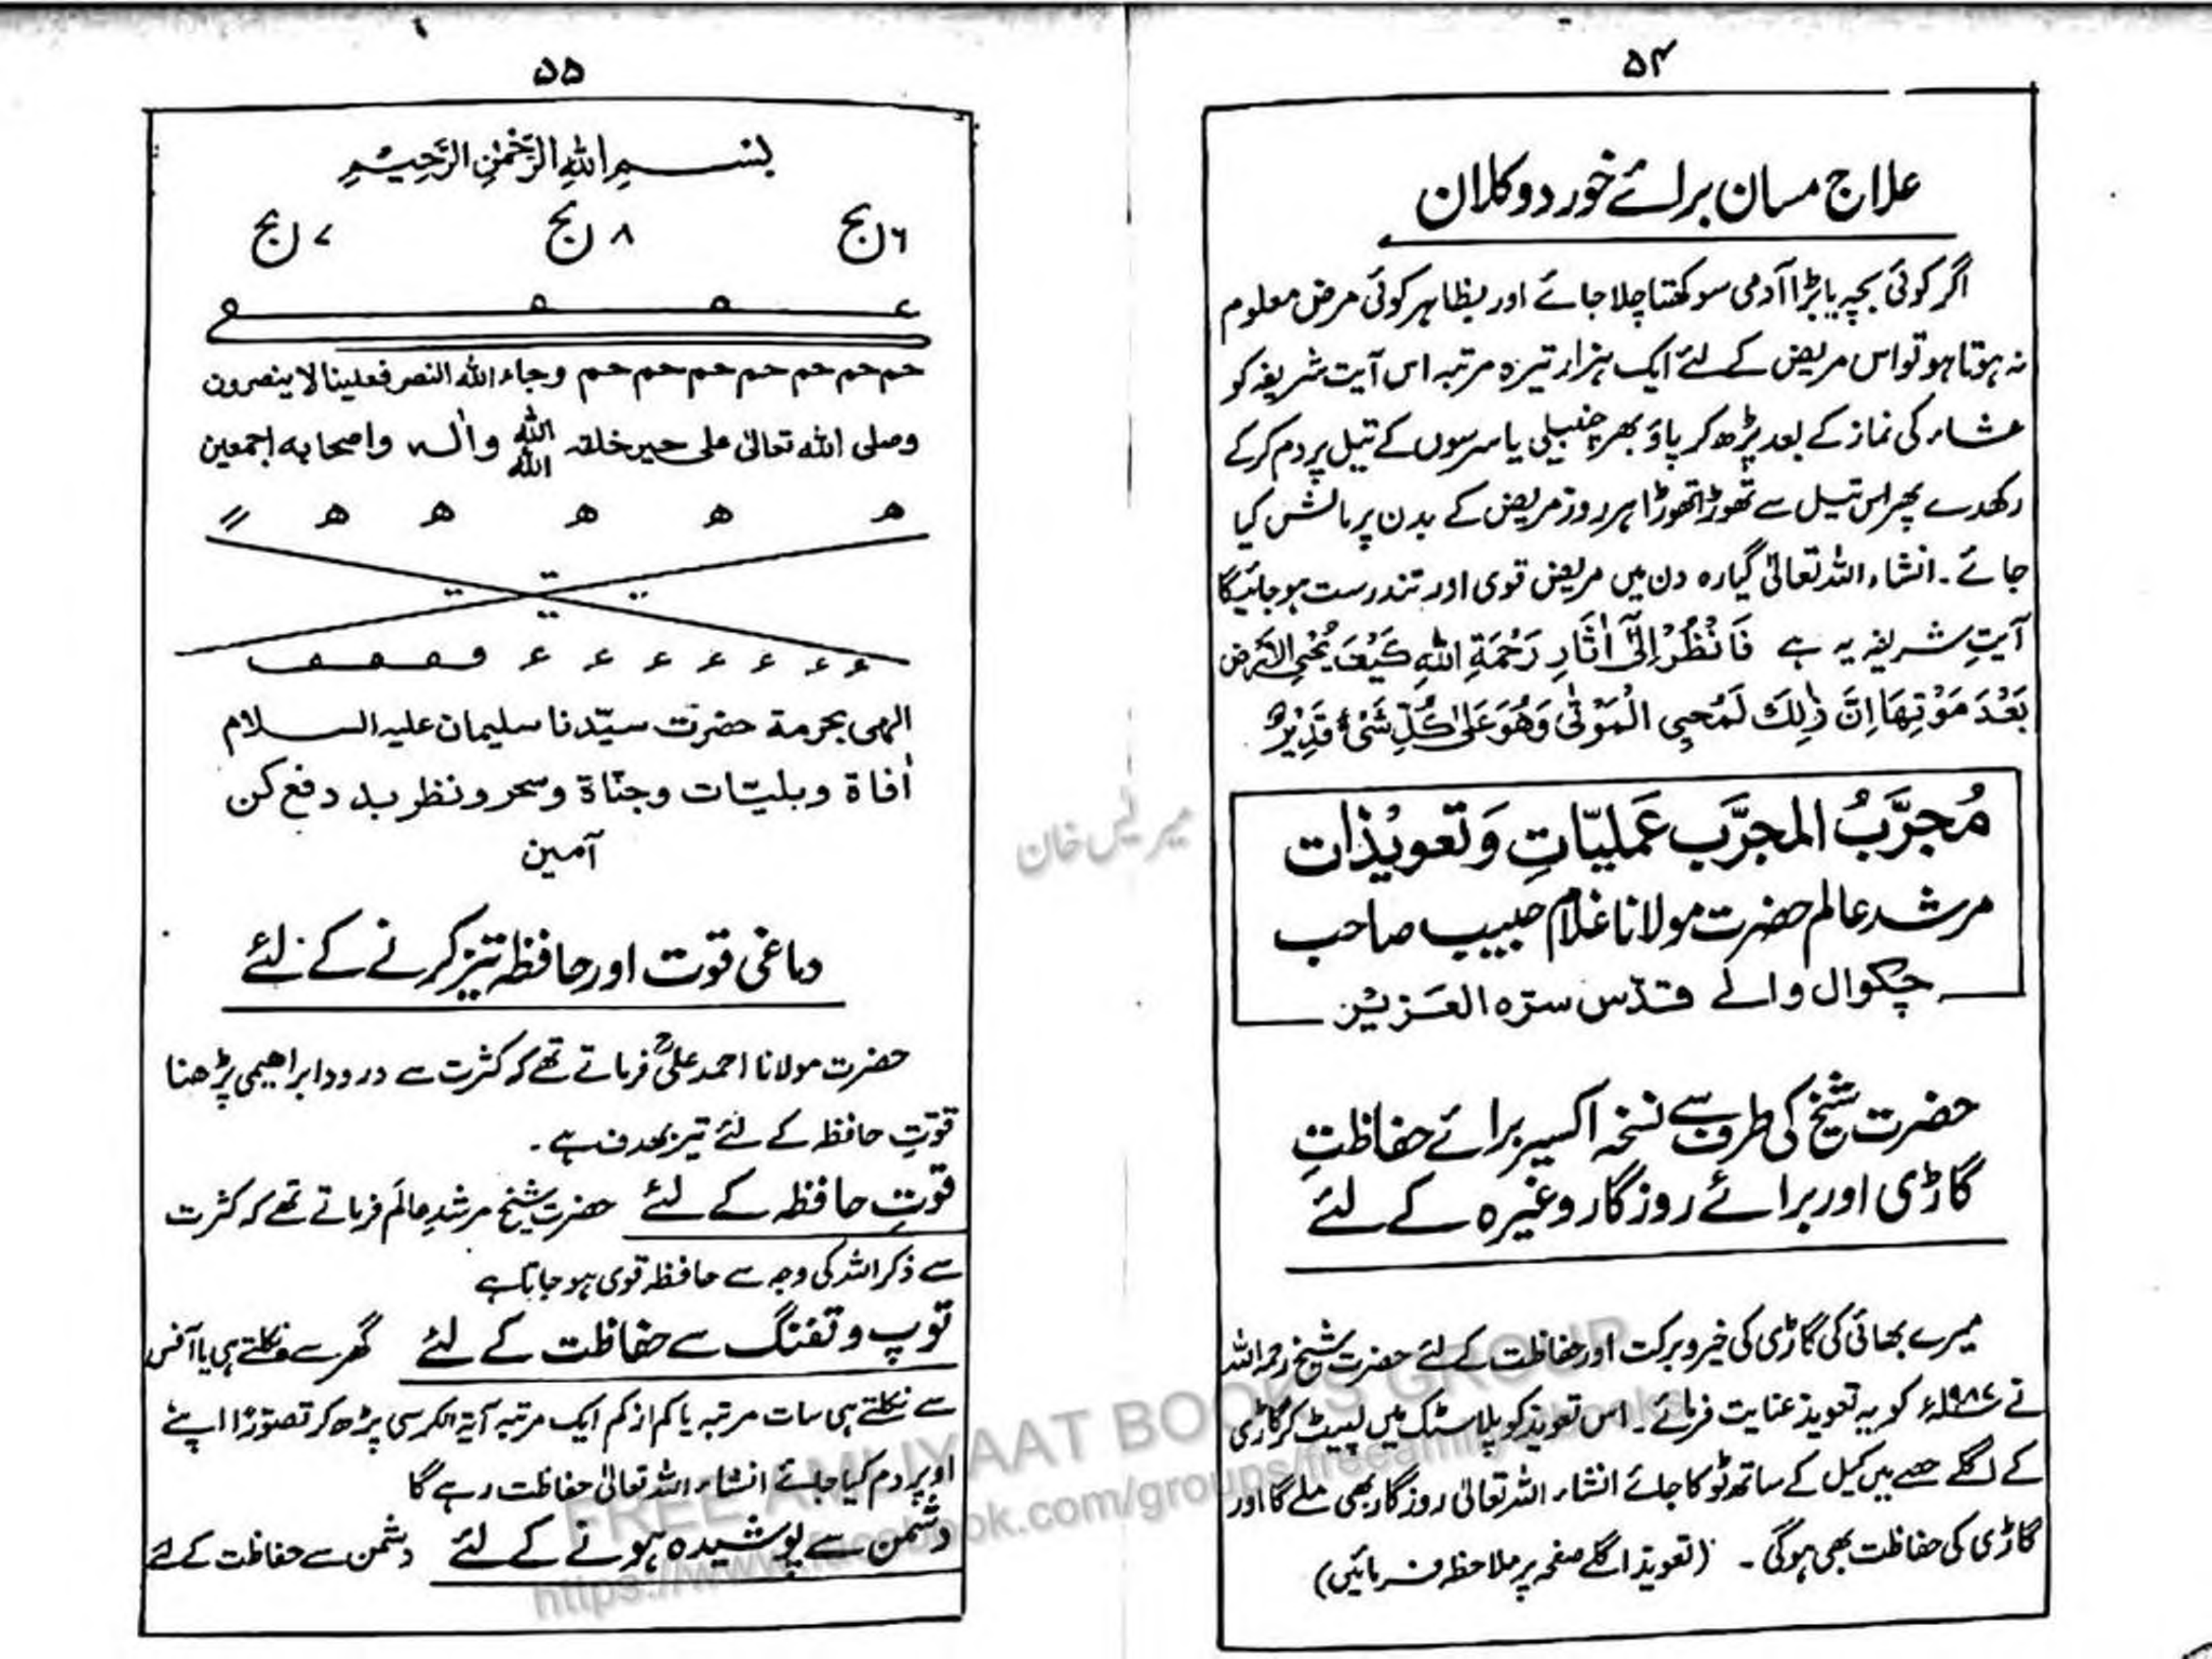 ۵۴
علاج مسان برائے خورد و کلان
اگر کوئی بچہ یا بڑا آدمی سوکھتا چلا جائے اور بظاہر کوئی مرض معلوم
نہ ہوتا ہو تو اس مریض کے لئے ایک ہزار تیرہ مرتبہ اس آیت شریفہ کو
عشاء کی نماز کے بعد پڑھ کر پاؤ بھر چنبیلی یا سرسوں کے تیل پر دم کر کے
رکھدے پھر اس تیل سے تھوڑا تھوڑا ہر روز مریض کے بدن پر مالش کیا
جائے۔ انشاء اللہ تعالیٰ گیارہ دن میں مریض قوی اور تندرست ہو جائیگا
آیتِ شریفہ یہ ہے فَانْظُرْ اِلٰٓى اٰثَارِ رَحْمَةِ اللهِ كَيْفَ يُحْيِ الْاَرْضَ
بَعْدَ مَوْتِهَا اِنَّ ذٰلِكَ لَمُحْيِ الْمَوْتٰى وَهُوَ عَلٰى كُلِّ شَىْءٍ قَدِيْرٌ
مُجرَّبُ المجرَّب عَملیّاتِ وَ تَعویْذات
مرشد عالم حضرت مولانا غلام حبیب صاحب
چکوال والے قدّس سرّہ العَزیْز
حضرت شیخ کی طرف سے نسخہ اکسیر برائے حفاظتِ
گاڑی اور برائے روزگار وغیرہ کے لئے
میرے بھائی کی گاڑی کی خیر و برکت اور حفاظت کے لئے حضرت شیخ رحمہ اللہ
نے ۱۹۸۷ء کو یہ تعویذ عنایت فرمائے۔ اس تعویذ کو پلاسٹک میں لپیٹ کر گاڑی
کے اگلے حصے میں کیل کے ساتھ ٹوکا جائے انشاء اللہ تعالیٰ روزگار بھی ملے گا اور
گاڑی کی حفاظت بھی ہوگی۔ (تعویذ اگلے صفحہ پر ملاحظہ فرمائیں)
۵۵
بسم اللهِ الرَّحْمٰنِ الرَّحِيْمِ
۶ ربج ۸ ربج ۷ ربج
حم حم حم حم حم حم حم وجاء الله النصر فعلينا لا ينصرون
وصلى الله تعالىٰ على خير خلقه الله الله واٰله واصحابه اجمعين
ھ ھ ھ ھ ھ
ء ء ء ء ء ء ء
الٰهى بحرمة حضرت سيّدنا سليمان عليه السلام
اٰفاة وبليّات وجنّاة وسحر ونظر بد دفع کن
آمین
دماغی قوت اور حافظہ تیز کرنے کے لئے
حضرت مولانا احمد علیؒ فرماتے تھے کہ کثرت سے درود ابراھیمی پڑھنا
قوّتِ حافظہ کے لئے تیز بہدف ہے۔
قوّتِ حافظہ کے لئے حضرت شیخ مرشدِ عالَم فرماتے تھے کہ کثرت
سے ذکر اللہ کی وجہ سے حافظہ قوی ہو جاتا ہے
توپ و تفنگ سے حفاظت کے لئے گھر سے نکلتے ہی یا آفس
سے نکلتے ہی سات مرتبہ یا کم از کم ایک مرتبہ آیۃ الکرسی پڑھ کر تصوّرًا اپنے
اوپر دم کیا جائے انشاء اللہ تعالیٰ حفاظت رہے گا
دشمن سے پوشیدہ ہونے کے لئے دشمن سے حفاظت کے لئے
FREE AMLIYAAT BOOKS GROUP
https://www.facebook.com/groups/freeamliyatbooks